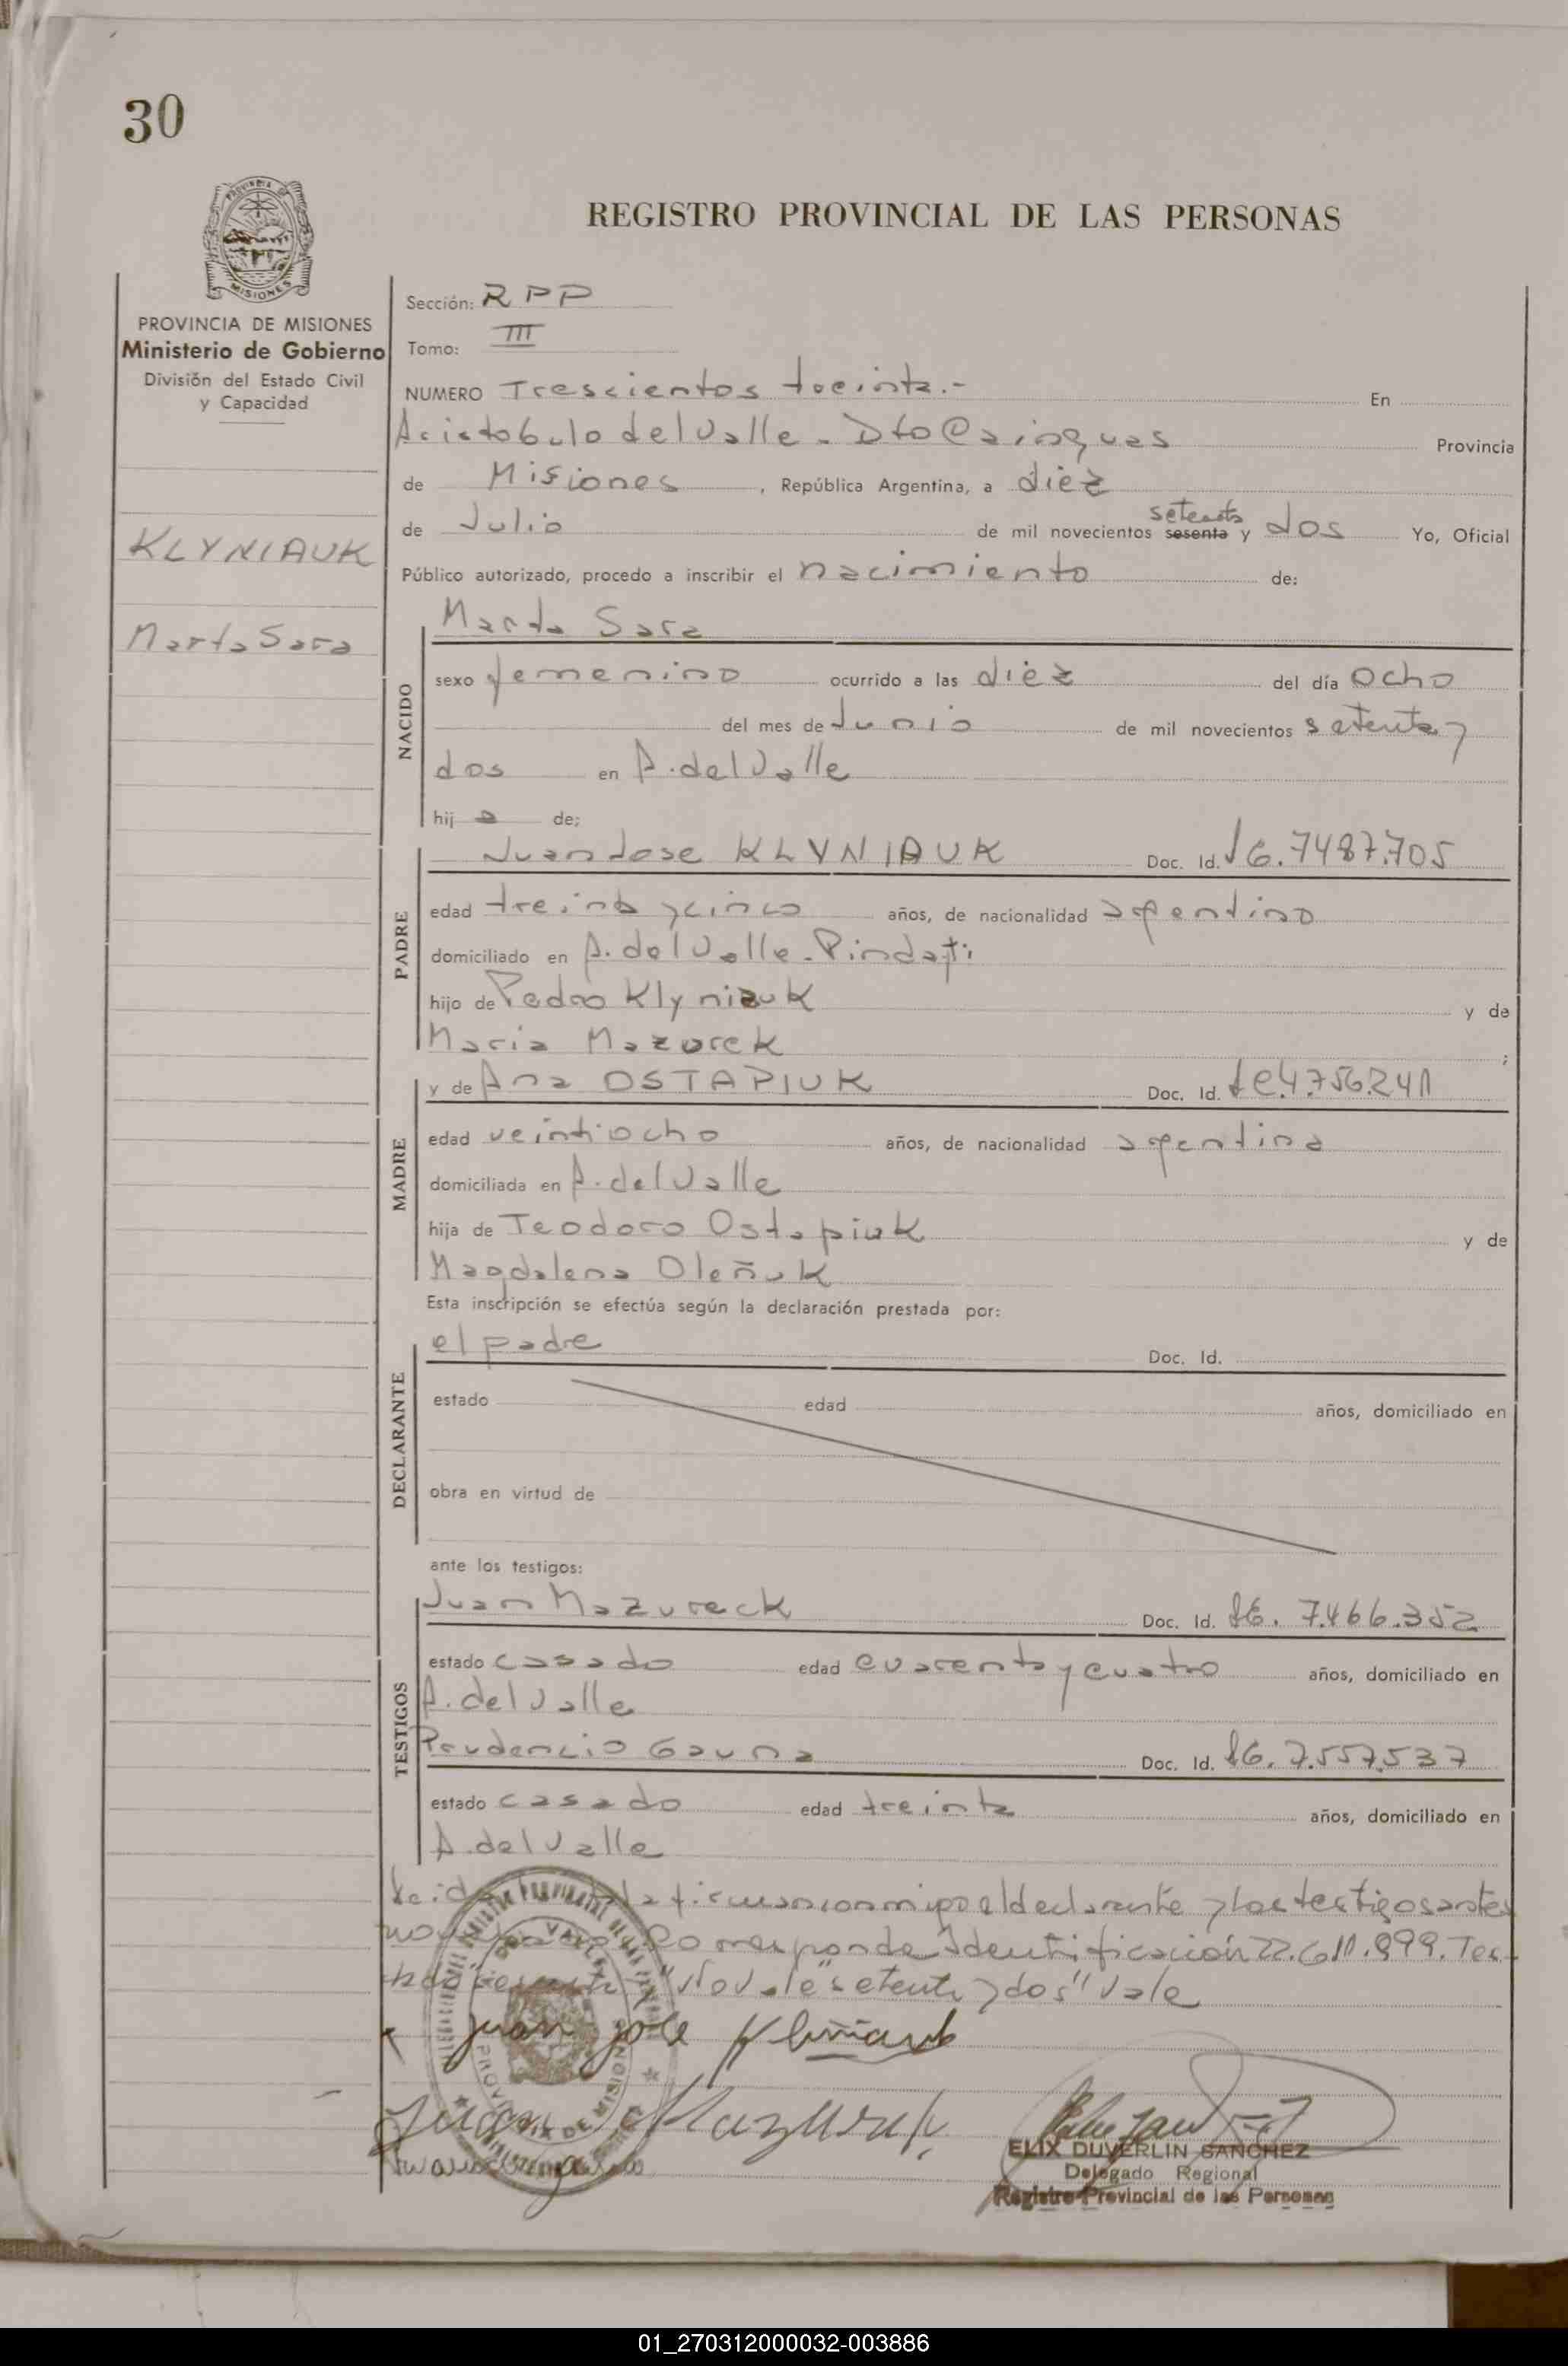 30
PROVINCIA DE MISIONES
REGISTRO PROVINCIAL DE LAS PERSONAS
PROVINCIA DE MISIONES
Ministerio de Gobierno
División del Estado Civil
y Capacidad
KLYNIAUK
Marta Sara
Sección: RPP
Tomo: III
NUMERO Trescientos treinta.- En
Aristobulo del Valle - Dto Cainguas Provincia
de Misiones, República Argentina, a diez
setenta
de Julio de mil novecientos sesenta y dos Yo, Oficial
Público autorizado, procedo a inscribir el nacimiento de:
NACIDO
Marta Sara
sexo femenino ocurrido a las diez del día ocho
del mes de Junio de mil novecientos setenta y
dos en A. del Valle
hij a de:
PADRE
Juan Jose KLYNIAUK Doc. Id. 7487.705
edad treinta y cinco años, de nacionalidad argentino
domiciliado en A. del Valle - Pindaiti
hijo de Pedro Klyniauk y de
Maria Mazurek ;
MADRE
y de Ana OSTAPIUK Doc. Id. 4.756.241
edad veintiocho años, de nacionalidad argentina
domiciliada en A. del Valle
hija de Teodoro Ostapiuk y de
Magdalena Oleñuk
Esta inscripción se efectúa según la declaración prestada por:
DECLARANTE
el padre Doc. Id.
estado edad años, domiciliado en
obra en virtud de
ante los testigos:
TESTIGOS
Juan Mazureck Doc. Id. 7.466.352
estado casado edad cuarenta y cuatro años, domiciliado en
A. del Valle
Prudencio Gauna Doc. Id. 7.557.537
estado casado edad treinta años, domiciliado en
A. del Valle
Leida la firman conmigo el declarante y los testigos antes
Corresponde Identificación 22.611.899. Tes-
tado "sesenta" "No vale" "setenta y dos" Vale
Juan jose Kliniauk
Juan Mazurek
ELIX DUVERLIN SANCHEZ
Delegado Regional
Registro Provincial de las Personas
01_270312000032-003886